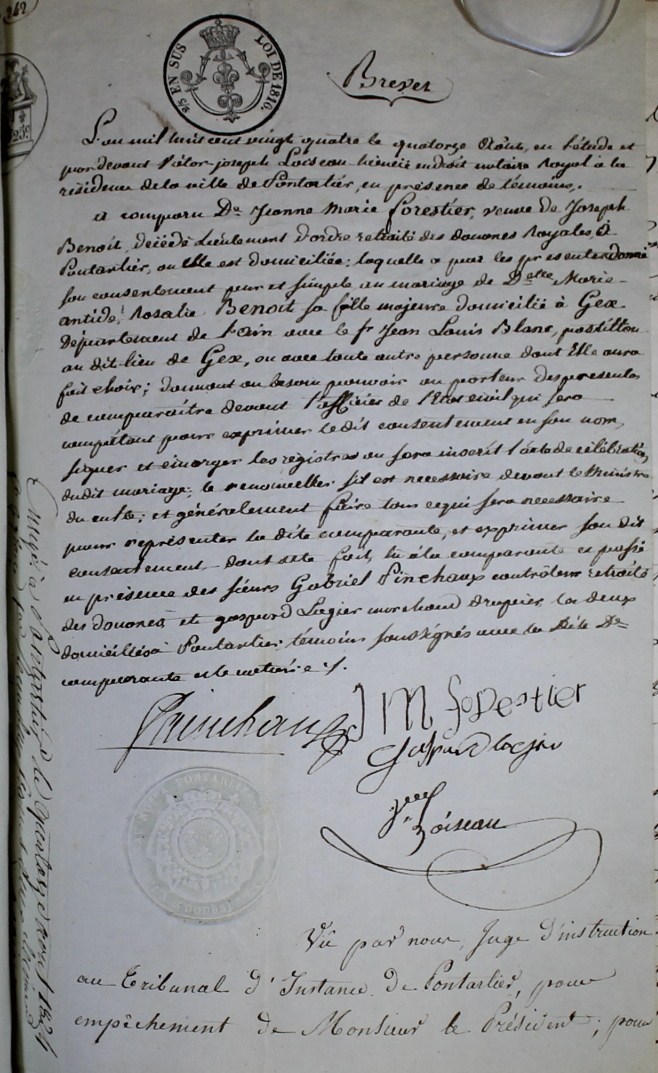 262
25 EN SUS LOI DE 1816.
25c
Brevet
L'an mil huit cent vingt quatre le quatorze Août, en l'étude et
pardevant Victor Joseph Loiseau licencié en droit notaire royal à la
résidence de la ville de Pontarlier, en présence de témoins.
a comparu De Jeanne Marie Forestier, veuve de Joseph
Benoit décédé Lieutenant d'ordre retraité des douanes Royales à
Pontarlier, ou elle est domiciliée; laquelle a par les présentes donné
son consentement pur et simple au mariage de Delle Marie
antide Rosalie Benoit sa fille majeure domicilié à Gex
département de l'ain avec le sr Jean Louis Blanc, postillon
au dit lieu de Gex, ou avec toute autre personne dont Elle aura
fait choix; donnant au besoin pouvoir au porteur des presentes
de comparaître devant l'officier de l'Etat civil qui sera
compétant pour exprimer le dit consentement en son nom,
signer et émarger les registres ou sera inscrit l'acte de célébration
dudit mariage; le renouveller s'il est necessaire devant le Ministre
du culte; et généralement faire tout ce qui sera necessaire
pour représenter la dite comparante, et exprimer son dit
consentement dont acte fait, lu à la comparante et passé
en présence des sieurs Gabriel Pinchaux contrôleur retraité
des douanes, et gaspard Lagier marchand drapier, les deux
domiciliés à Pontarlier témoins soussignés avec la dite De
comparante et le notaire ./.
Pinchaux
J M forestier
Gaspard lagier
Vor Jh Loiseau
Enregistré à Pontarlier le quinze août 1824
Vu par nous, Juge d'instruction
au Tribunal d'Instance de Pontarlier, pour
empêchement de Monsieur le Président; pour